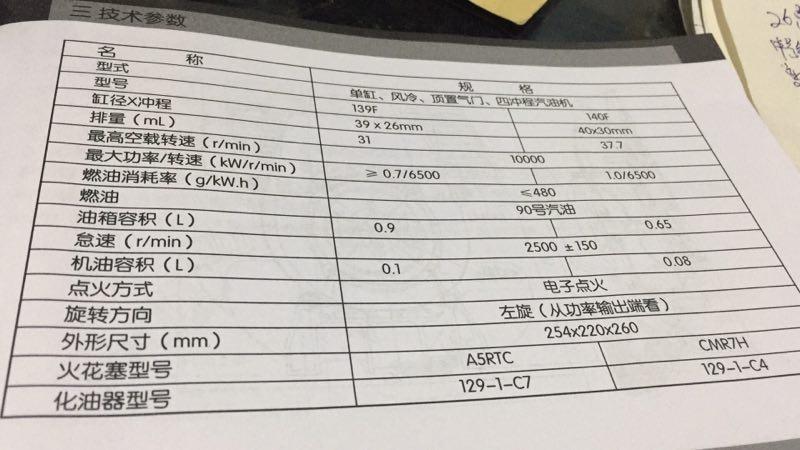 三 技术参数
名 称 规 格
型式 单缸、风冷、顶置气门、四冲程汽油机
型号 139F 140F
缸径X冲程 39 x 26mm 40x30mm
排量（mL） 31 37.7
最高空载转速（r/min） 10000
最大功率/转速（kW/r/min） ≥ 0.7/6500 1.0/6500
燃油消耗率（g/kW.h） ≤480
燃油 90号汽油
油箱容积（L） 0.9 0.65
怠速（r/min） 2500 ±150
机油容积（L） 0.1 0.08
点火方式 电子点火
旋转方向 左旋（从功率输出端看）
外形尺寸（mm） 254x220x260
火花塞型号 A5RTC CMR7H
化油器型号 129-1-C7 129-1-C4
26